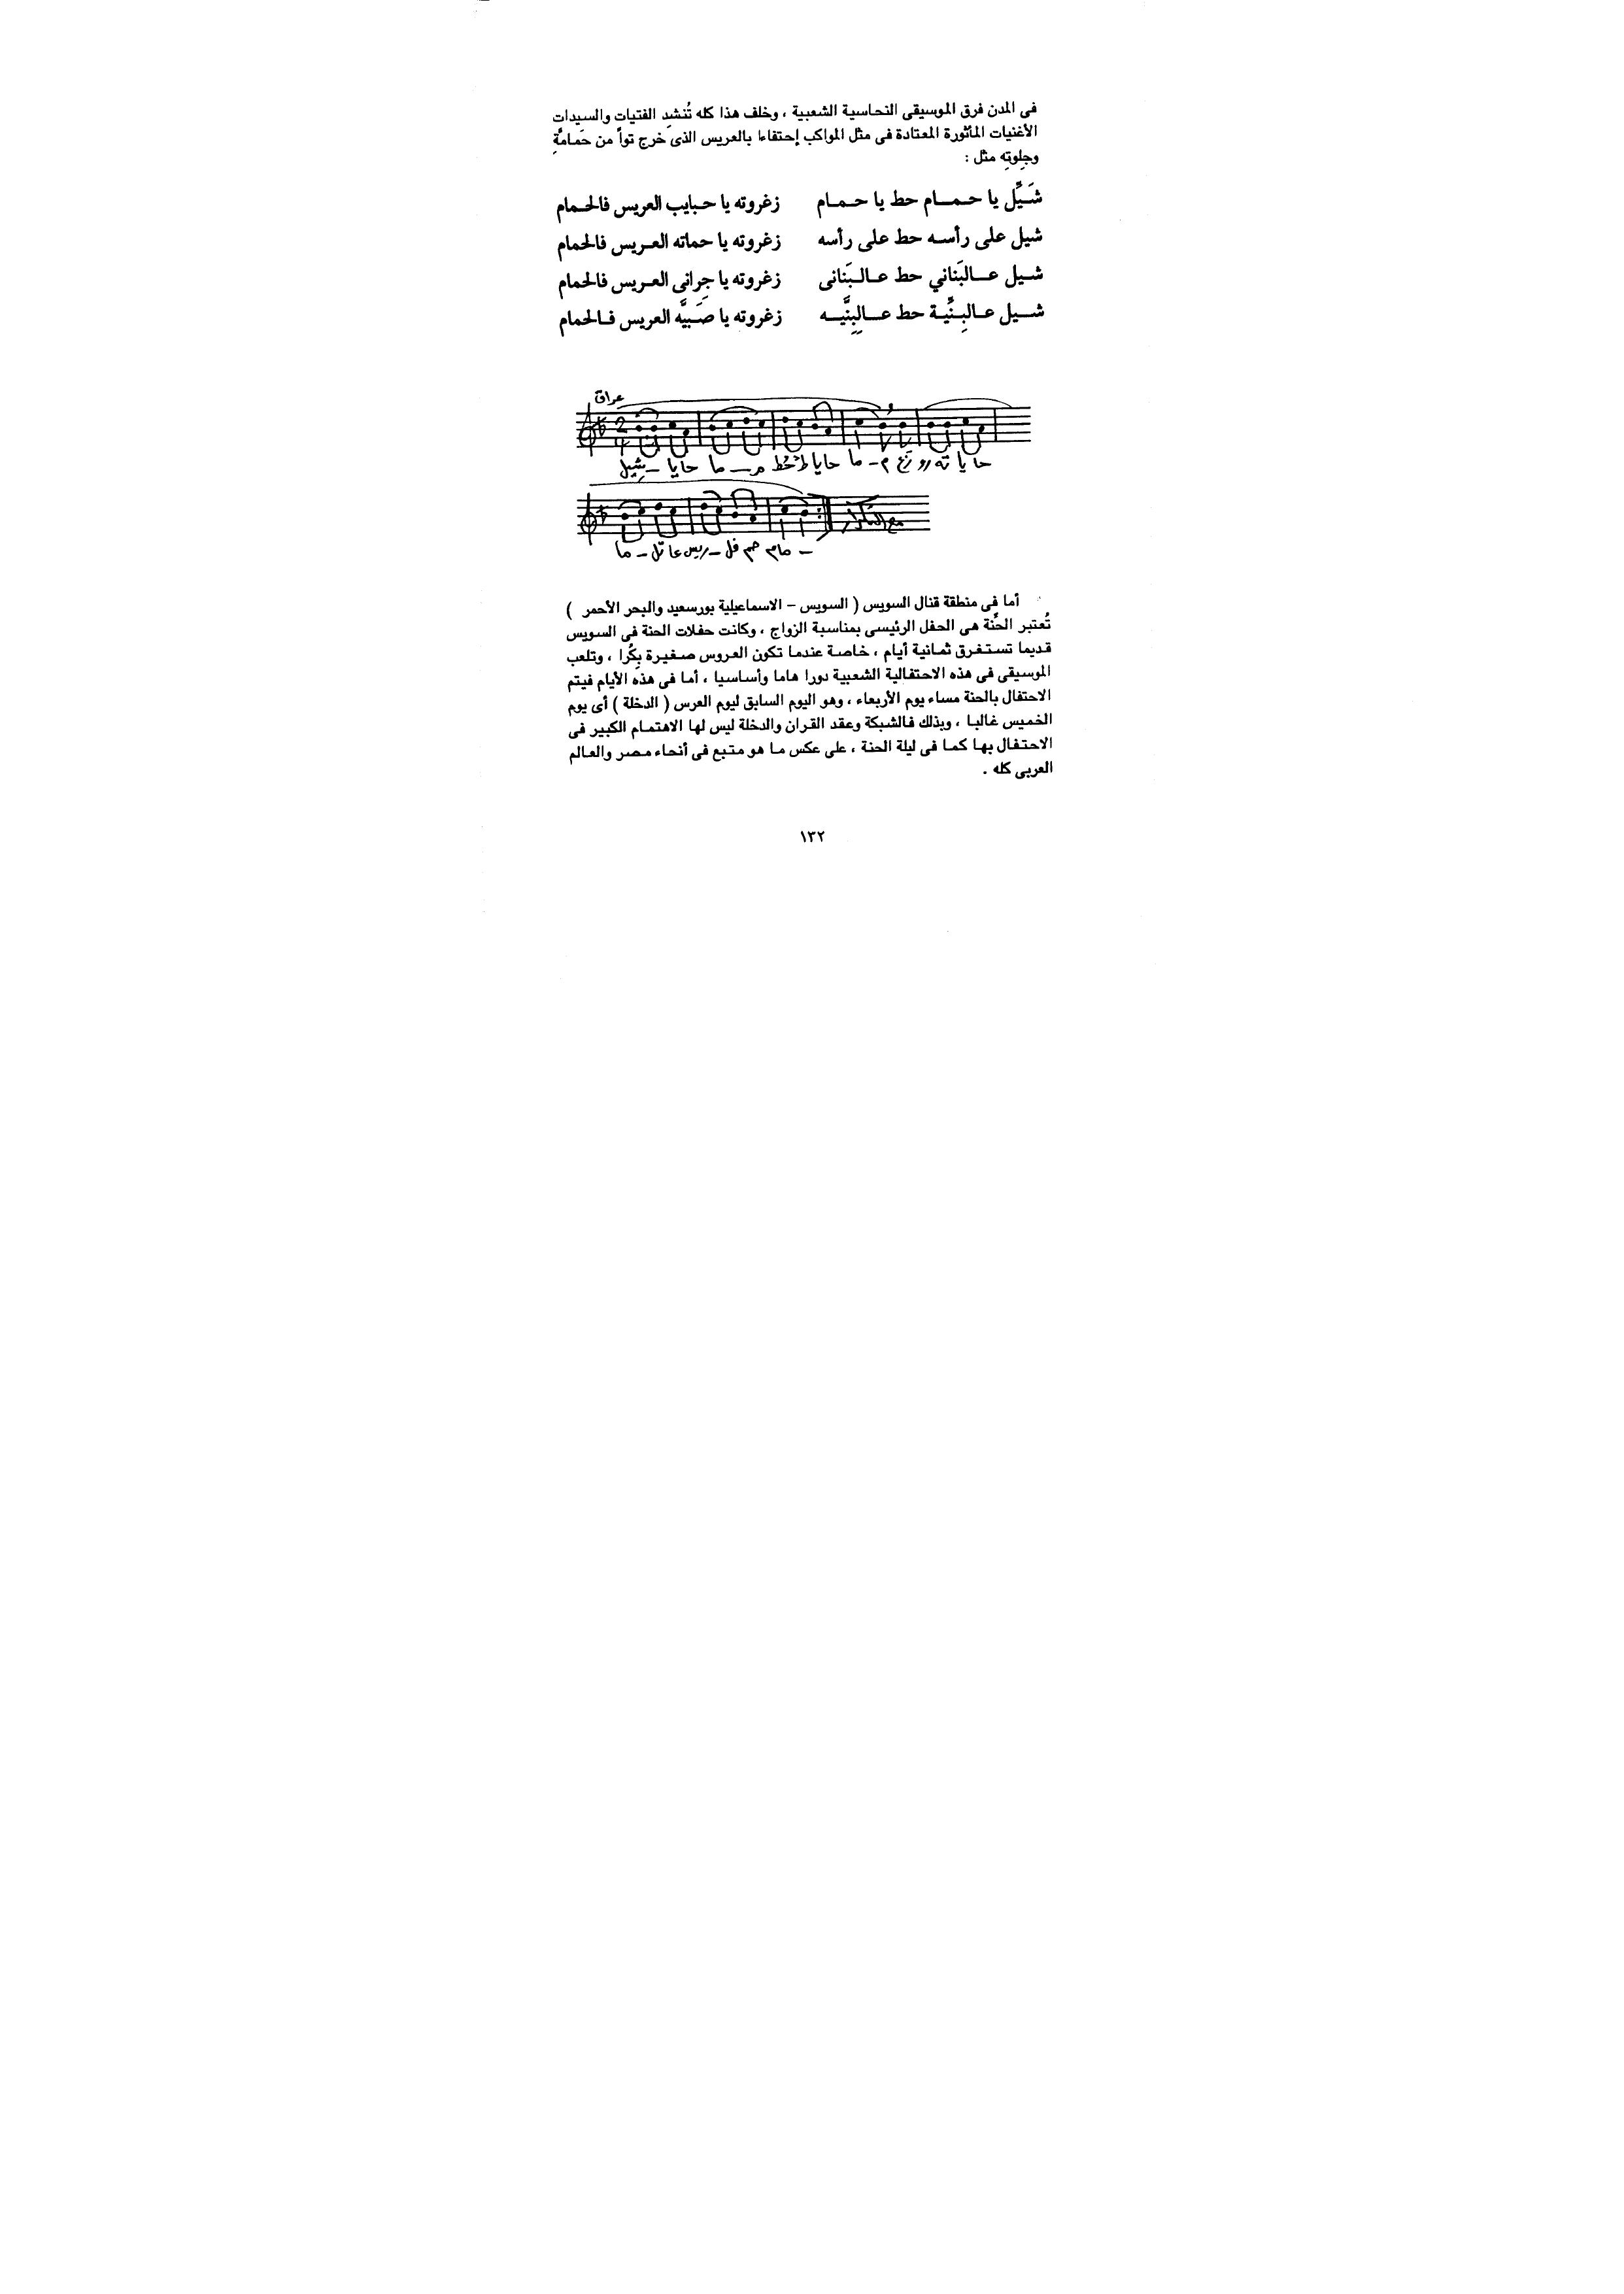 فى المدن فرق الموسيقى النحاسية الشعبية ، وخلف هذا كله تُنشدِ الفتيات والسيدات
الأغنيات المأثورة المعتادة فى مثل المواكب إحتفاءا بالعريس الذى خرج تواً من حَمامَّةِ
وجلوتِه مثل :
شَـيِّل يا حـمـــام حط يا حـمـام زغروته يا حـبايب العريس فالحـمام
شيل على رأسـه حط على رأسه زغروته يا حماته العـريس فالحمام
شـيل عـــالبَناني حط عـالـبَنانى زغروته يا جِرانى العـريس فالحمام
شـــيل عـالبِـنِّيـة حط عـــالبِنَّيـــه زغروته يا صَـبيَّه العريس فـالحمام
عراق
شيل - يا حا ما - م حط يا حا ما - م زغ رو ته يا حا
ما - عا ريس - فل حم مام -
مع التكرار
أما فى منطقة قنال السويس ( السويس – الاسماعيلية بورسعيد والبحر الأحمر )
تُعتبر الحنَّة هى الحفل الرئيسى بمناسبة الزواج ، وكانت حفلات الحنة فى السويس
قديما تستـغرق ثمـانية أيام ، خاصـة عندمـا تكون العروس صـغيرة بِكُرا ، وتلعب
الموسيقى فى هذه الاحتفالية الشعبية دورا هاما وأساسيا ، أما فى هذه الأيام فيتم
الاحتفال بالحنة مساء يوم الأربعاء ، وهو اليوم السابق ليوم العرس ( الدخلة ) أى يوم
الخميس غالبـا ، وبذلك فـالشبكة وعقد القـران والدخلة ليس لها الاهتمـام الكبير فى
الاحتـفال بهـا كمـا فى ليلة الحنة ، على عكس مـا هو متبع فى أنحاء مـصر والعـالم
العربى كله .
١٣٢